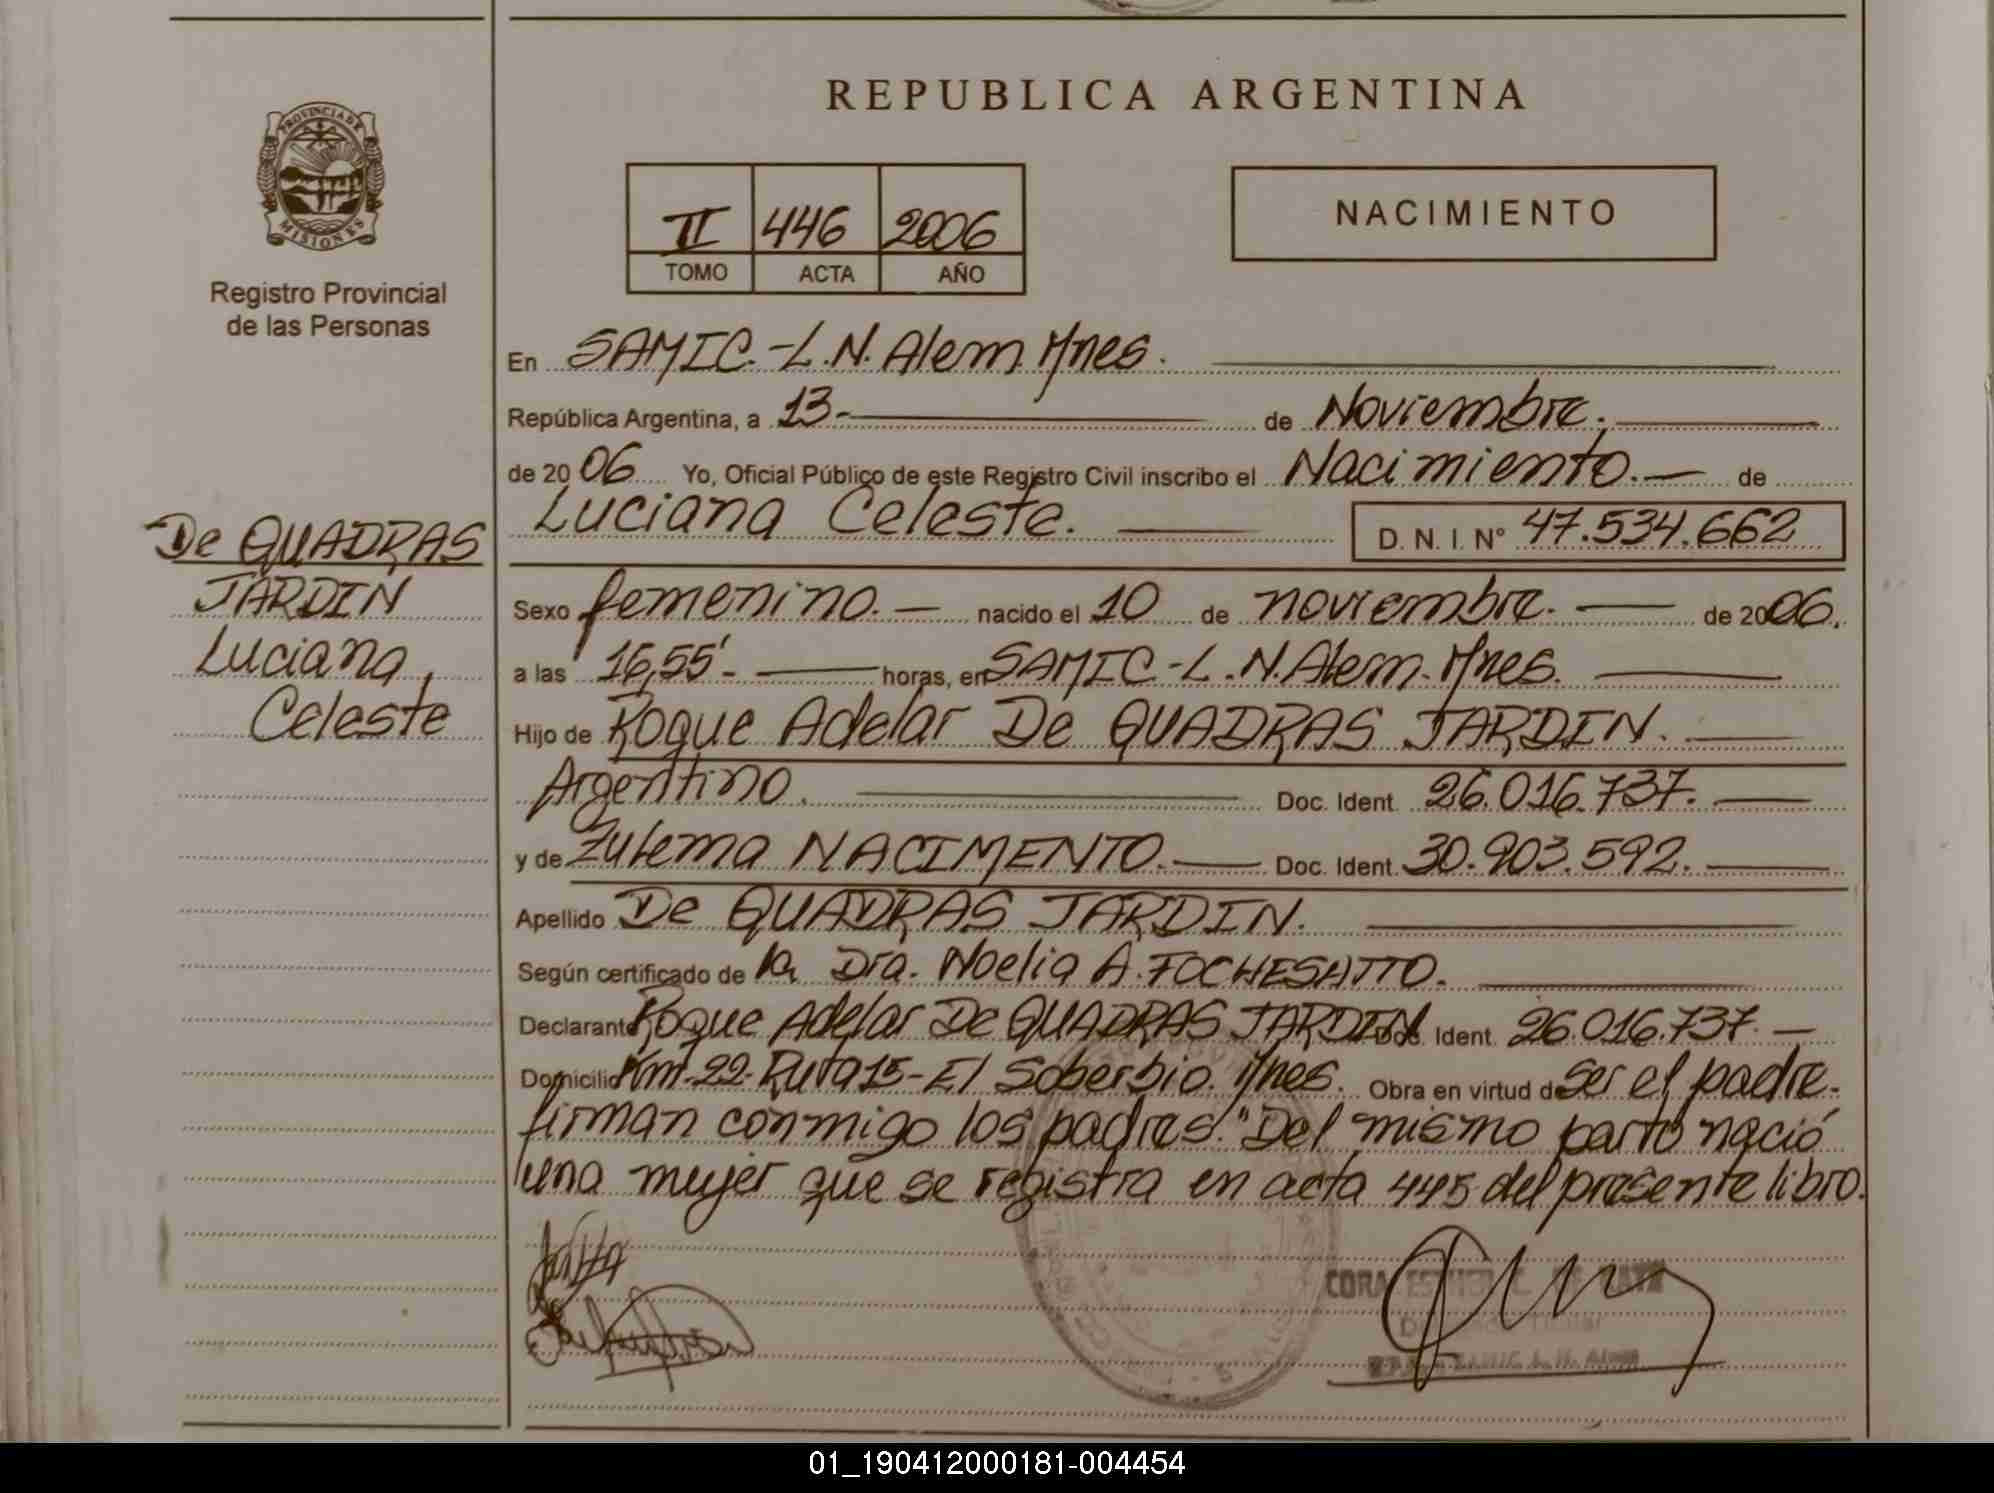 REPUBLICA ARGENTINA
PROVINCIA DE
MISIONES
Registro Provincial
de las Personas
II 446 2006
TOMO ACTA AÑO
NACIMIENTO
De QUADRAS
JARDIN
Luciana
Celeste
En SAMIC.-L.N.Alem Mnes.
República Argentina, a 13- de Noviembre.
de 2006 Yo, Oficial Público de este Registro Civil inscribo el Nacimiento.- de
Luciana Celeste. D. N. I. N° 47.534.662
Sexo femenino.- nacido el 10 de noviembre. de 2006.
a las 16,55'- horas, en SAMIC-L.N.Alem.Mnes.
Hijo de Roque Adelar De QUADRAS JARDIN.
Argentino. Doc. Ident. 26.016.737.
y de Zulema NACIMENTO. Doc. Ident. 30.903.592.
Apellido De QUADRAS JARDIN.
Según certificado de la Dra. Noelia A. FOCHESATTO.
Declarante Roque Adelar De QUADRAS JARDIN Doc. Ident. 26.016.737.-
Domicilio Km-22-Ruta 15-El Soberbio. Mnes. Obra en virtud de ser el padre.
firman conmigo los padres. "Del mismo parto nació
una mujer que se registra en acta 445 del presente libro.
CORA ESTHER
L. N. Alem
01_190412000181-004454